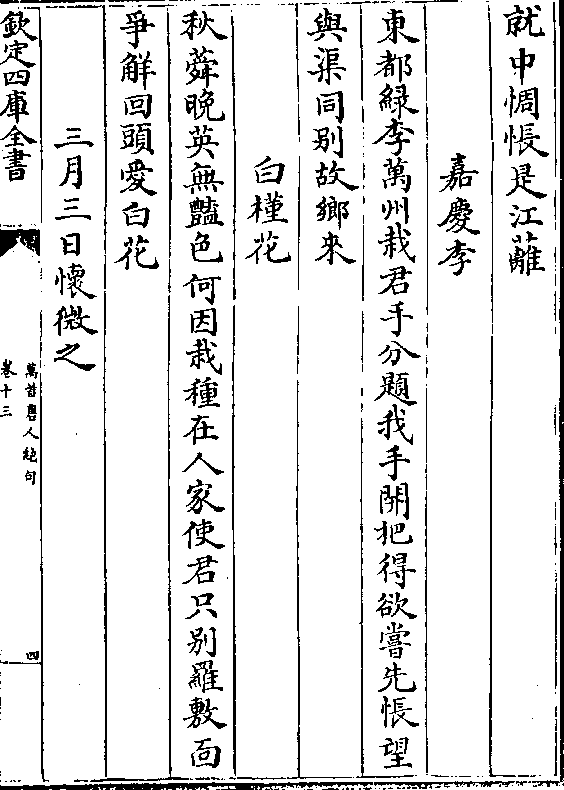 就中惆悵是江蘺
嘉慶李
東都綠李萬州栽君手分題我手開把得欲嘗先悵望
與渠同别故鄉來
白槿花
秋蕣晚英無豔色何因栽種在人家使君只别羅敷面
爭解回頭愛白花
三月三日懷微之
欽定四庫全書
萬首唐人絶句
卷十三
四